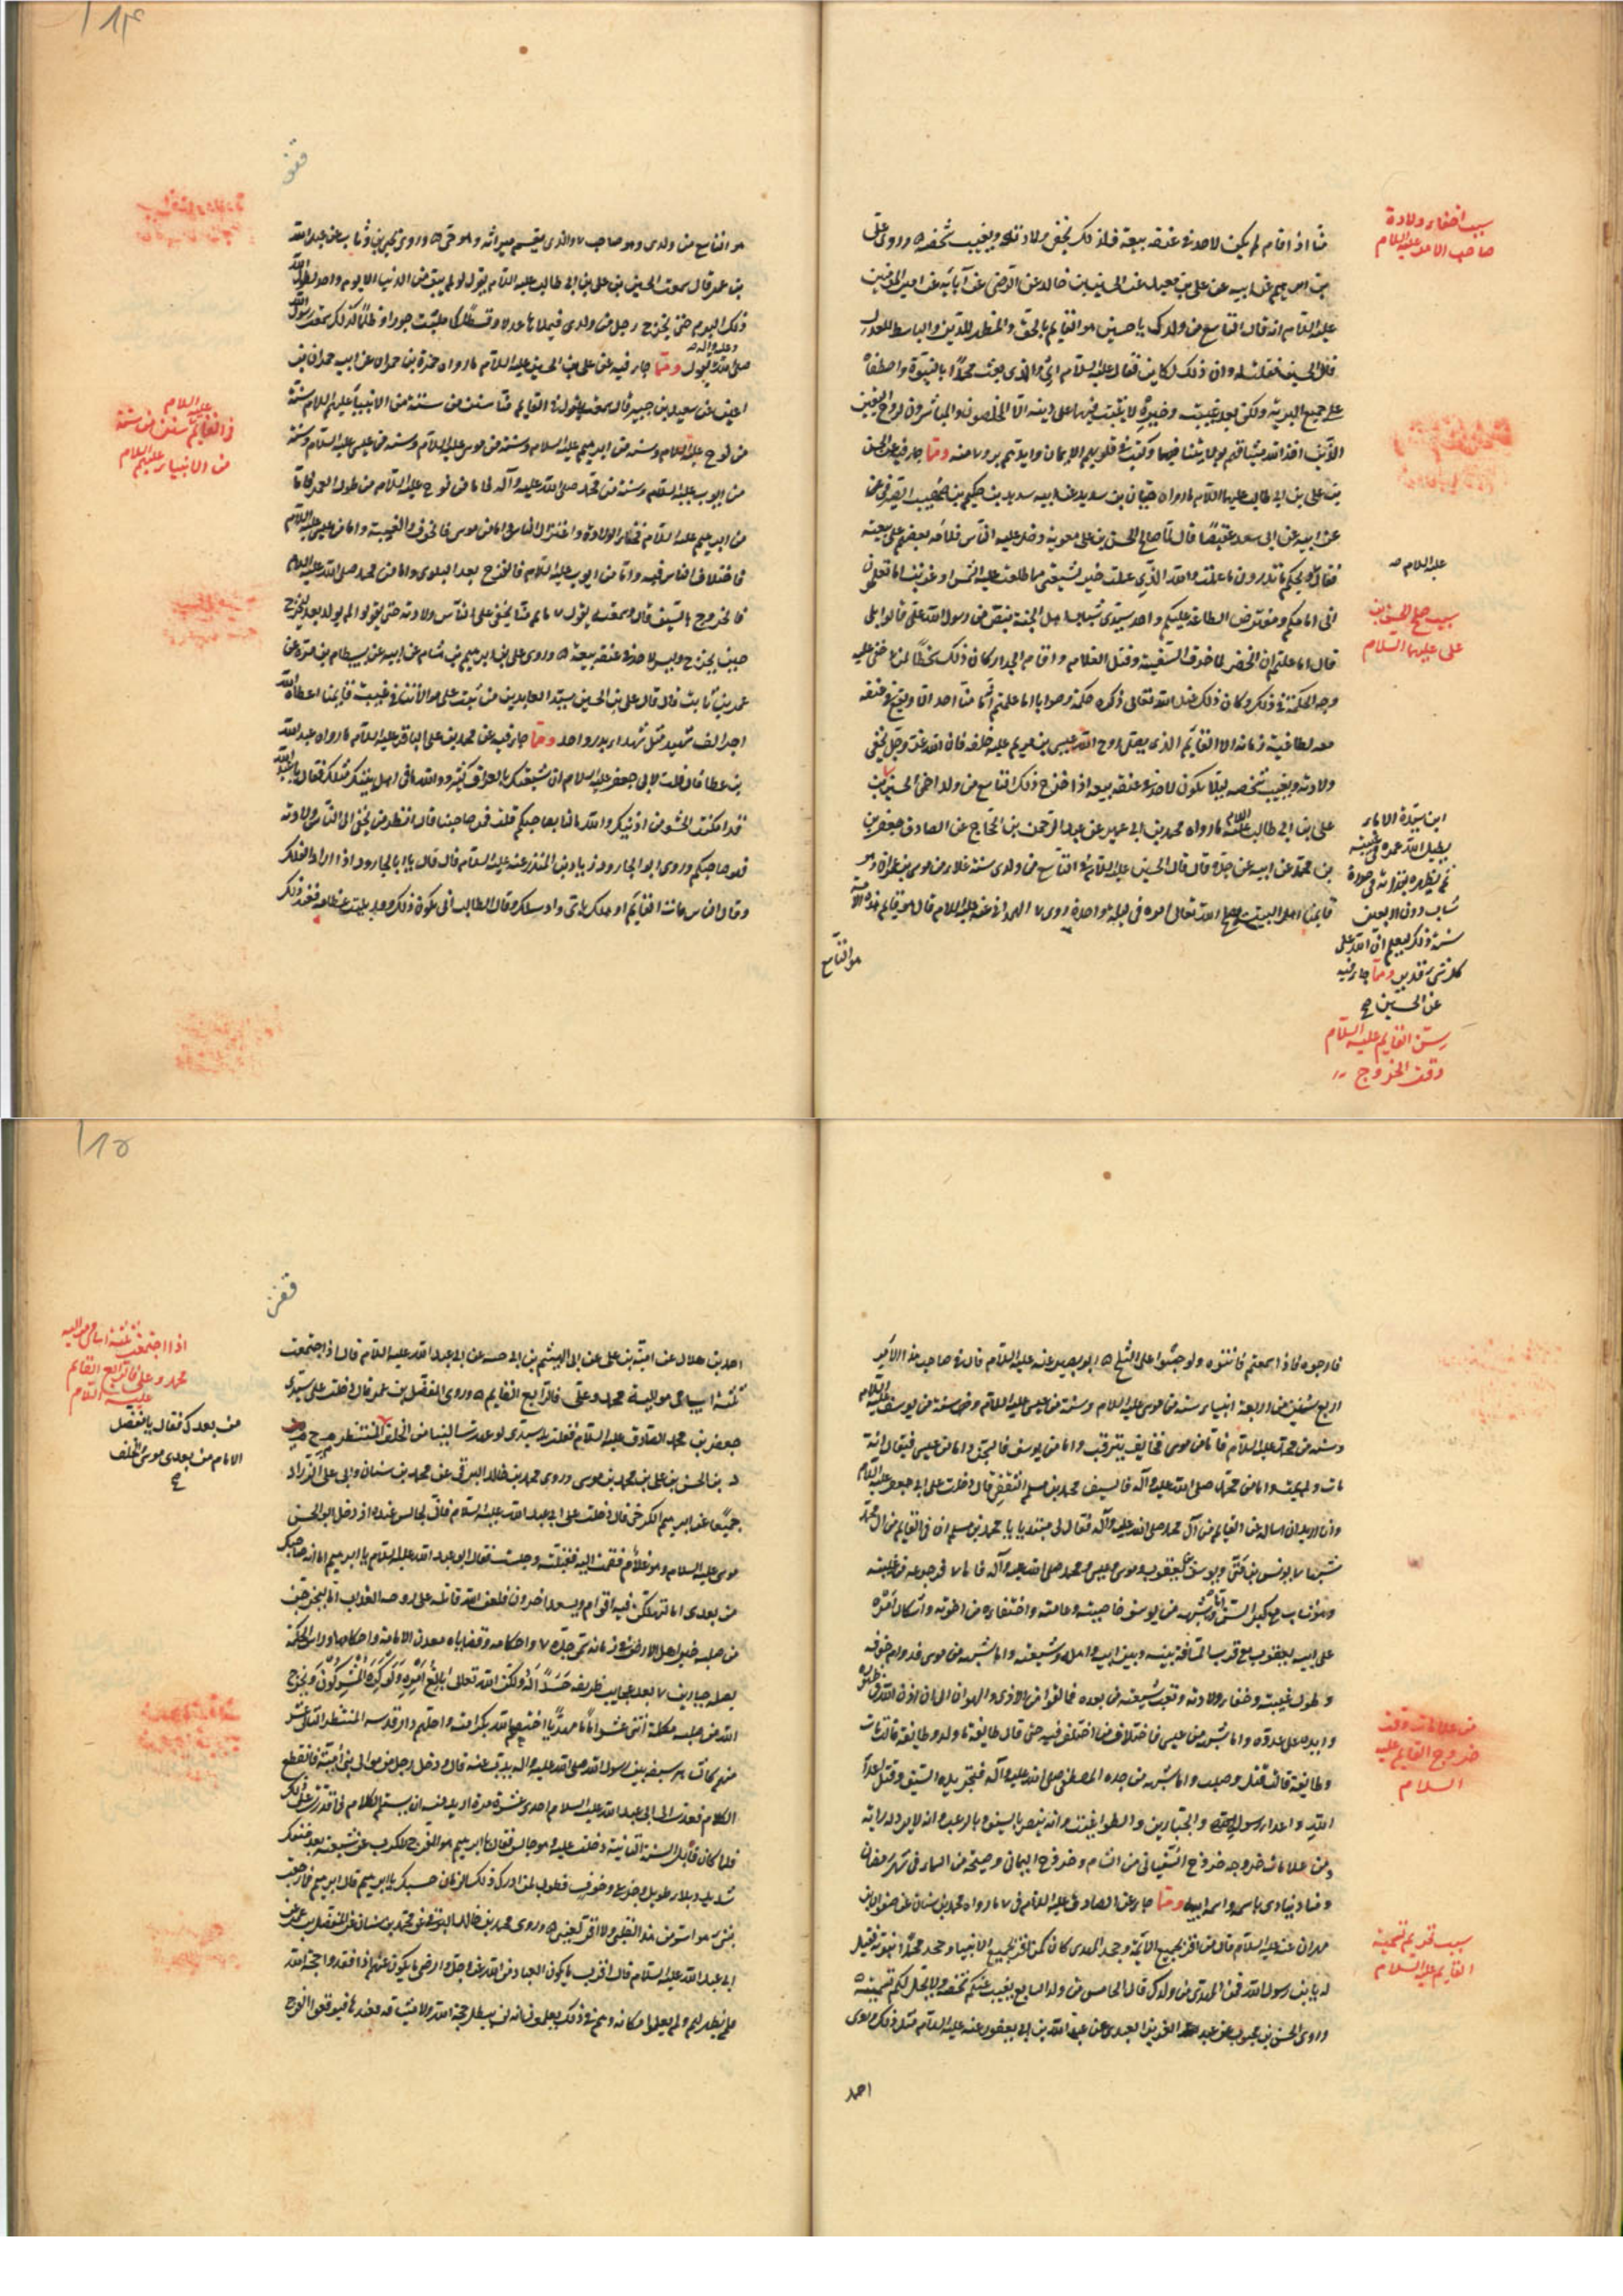 سبب اخفاء ولادة
صاحب الامر عليه السلام
منا اذا قام لم يكن لاحد في عنقه بيعة فلذلك تخفى ولادته ويغيب شخصه وروى علي
بن ابراهيم عن ابيه عن علي بن معبد عن الحسين بن خالد عن الرضى عن آبائه عن امير المؤمنين
عليه السلام انه قال التاسع من ولدك يا حسين هو القايم بالحق والمظهر للدين والباسط للعدل
قال الحسين فقلت له وان ذلك لكاين فقال عليه السلام اي والذي بعث محمدا بالنبوة واصطفاه
على جميع البرية ولكن بعد غيبة وحيرة لا يثبت فيها على دينه الا المخلصون المباشرون لروح اليقين
الذين اخذ الله ميثاقهم بولايتنا وكتب في قلوبهم الايمان وايدهم بروح منه ومما جاء فيه عن الحسن
بن علي بن ابي طالب عليهما السلام ما رواه حنان بن سدير عن ابيه سدير بن حكيم
عن ابيه عن ابي سعيد عقيصا قال لما صالح الحسن بن علي معوية دخل عليه الناس فلامه بعضهم على بيعته
فقال ويحكم ما تدرون ما عملت والله الذي عملت خير لشيعتي مما طلعت عليه الشمس او غربت اما تعلمون
عليه السلام
اني امامكم ومفترض الطاعة عليكم واحد سيدي شباب اهل الجنة بنص من رسول الله علي قالوا بلى
سبب صلح الحسن بن
علي عليهما السلام
قال اما علمتم ان الخضر لما خرق السفينة وقتل الغلام واقام الجدار كان ذلك سخطا لموسى اذ خفي عليه
وجه الحكمة في ذلك وكان ذلك عند الله تعالى ذكره حكمة وصوابا اما علمتم انه ما منا احد الا ويقع في عنقه
بيعة لطاغية زمانه الا القايم الذي يصلي روح الله عيسى بن مريم عليه خلفه فان الله عز وجل يخفي
ولادته ويغيب شخصه ليلا يكون لاحد في عنقه بيعة اذا خرج ذلك التاسع من ولد اخي الحسين بن
علي بن ابي طالب عليه السلام ما رواه محمد بن ابي عمير عن عبد الرحمن بن الحجاج عن الصادق جعفر بن
بن محمد عن ابيه عن جده قال قال الحسين عليه السلام في التاسع من ولدي سنة من موسى بن عمران وهو
قايمنا اهل البيت يصلح الله تعالى امره في ليلة واحدة وروى الهمداني عنه عليه السلام قال هو قايم هذه الامة
ابن سيدة الاماء
يطيل الله عمره في غيبته
ثم يظهره بقدرته في صورة
شاب دون الاربعين
سنة ذلك ليعلم ان الله على
كل شيء قدير ومما جاء فيه
عن الحسين صح
سن القايم عليه السلام
وقت الخروج
هو التاسع
هو التاسع من ولدي وهو صاحب والذي يقسم ميراثه وهو حي وروى يحيى بن وثاب عن عبد الله
بن عمر قال سمعت الحسين بن علي بن ابي طالب عليه السلام يقول لو لم يبق من الدنيا الا يوم واحد لطول الله
ذلك اليوم حتى يخرج رجل من ولدي فيملاها عدلا وقسطا كما ملئت جورا وظلما كذلك سمعت رسول الله
صلى الله عليه وآله يقول ومما جاء فيه عن علي بن الحسين عليه السلام ما رواه حمزة بن حمران عن ابيه حمران بن
اعين عن سعيد بن جبير قال سمعته يقول في القايم منا سنن من سنن الانبياء عليهم السلام سنة
في القايم عليه السلام سنن من سنة
من الانبياء عليهم السلام
من نوح عليه السلام وسنة من ابراهيم عليه السلام وسنة من موسى عليه السلام وسنة من عيسى عليه السلام وسنة
من ايوب عليه السلام وسنة من محمد صلى الله عليه وآله فاما من نوح عليه السلام فطول العمر واما
من ابراهيم عليه السلام فخفاء الولادة واعتزال الناس واما من موسى فالخوف والغيبة واما من عيسى عليه السلام
فاختلاف الناس فيه واما من ايوب عليه السلام فالفرج بعد البلوى واما من محمد صلى الله عليه السلام
فالخروج بالسيف قال وسمعته يقول القايم منا يخفى على الناس ولادته حتى يقولوا لم يولد بعد ليخرج
حين يخرج وليس لاحد في عنقه بيعة وروى علي بن ابراهيم بن هشام عن ابيه عن بسطام بن مرة عن
عمرو بن ثابت قال قال علي بن الحسين سيد العابدين من ثبت على موالاتنا في غيبة قايمنا اعطاه الله
اجر الف شهيد مثل شهداء بدر واحد ومما جاء فيه عن محمد بن علي الباقر عليه السلام ما رواه عبد الله
بن عطا قال قلت لابي جعفر عليه السلام ان شيعتك بالعراق كثيرة ووالله ما في اهل بيتك مثلك فقال يا عبد الله
قد امكنت الحشو من اذنيك والله ما انا بصاحبكم قلت فمن صاحبنا قال انظر من يخفى الى الناس ولادته
فهو صاحبكم وروى ابو الجارود زياد بن المنذر عنه عليه السلام قال قال يا ابا الجارود اذا دار الفلك
وقال الناس مات القايم او هلك باي واد سلك وقال الطالب انى يكون ذلك وقد بليت عظامه فعند ذلك
فارجوه فاذا سمعتم به فاتوه ولو حبوا على الثلج ابو بصير عنه عليه السلام قال في صاحب هذا الامر
اربع سنن من اربعة انبياء سنة من موسى عليه السلام وسنة من عيسى عليه السلام وسنة من يوسف عليه السلام
وسنة من محمد عليه السلام فاما من موسى فخايف يترقب واما من يوسف فالسجن واما من عيسى فيقال انه
مات ولم يمت واما من محمد صلى الله عليه وآله فالسيف محمد بن مسلم الثقفي قال دخلت على ابي جعفر عليه السلام
وانا اريد ان اساله عن القايم من آل محمد صلى الله عليه وآله فقال لي مبتديا يا محمد بن مسلم ان في القايم من آل محمد
شبها يونس بن متى ويوسف بن يعقوب وموسى وعيسى ومحمد صلى الله عليه وآله فاما فرجوعه من غيبته
وهو شاب مع كبر السن واما شبهه من يوسف فاختفاؤه من اخوته واشكال امره
على ابيه يعقوب مع قرب المسافة بينه وبين ابيه واهله وشيعته واما شبهه من موسى فدوام خوفه
وطول غيبته وخفاء ولادته وتعب شيعته من بعده مما لقوا من الاذى والهوان الى ان اذن الله في ظهوره
وايده على عدوه واما شبهه من عيسى فاختلاف من اختلف فيه حتى قال طايفة ما ولد وطايفة قالت مات
وطايفة قالت قتل وصلب واما شبهه من جده المصطفى صلى الله عليه وآله فتجريده السيف وقتل اعداء
من علامات وقت
خروج القايم عليه
السلام
الله واعداء رسوله والجبارين والطواغيت وانه ينصر بالسيف والرعب وانه لا يرد له راية
ومن علامات خروجه خروج السفياني من الشام وخروج اليماني وصيحة من السماء في شهر رمضان
ومناد ينادي باسمه واسم ابيه ومما جاء عن الصادق عليه السلام ما رواه محمد بن سنان عن صفوان بن
سبب تحريم تسمية
القايم عليه السلام
مهران عنه عليه السلام قال من اقر بجميع الائمة وجحد المهدي كان كمن اقر بجميع الانبياء وجحد محمدا نبوته فقيل
له يا بن رسول الله فمن المهدي من ولدك قال الخامس من ولد السابع يغيب عنكم شخصه ولا يحل لكم تسميته
وروى الحسن بن محبوب عن عبد العزيز العبدي عن عبد الله بن ابي يعفور عنه عليه السلام مثل ذلك وروى
احمد
احمد بن هلال عن امية بن علي عن ابي الهيثم بن ابي حبة عن ابي عبد الله عليه السلام قال اذا اجتمعت
ثلثة اسامي متوالية محمد وعلي فالرابع القايم وروى المفضل بن عمر قال دخلت على سيدي
اذا اجتمعت ثلثة اسامي متوالية
محمد وعلي فالرابع القايم
عليه السلام
جعفر بن محمد الصادق عليه السلام فقلت يا سيدي لو عهدت الينا من الخلف المنتظر
من بعدك فقال يا مفضل
الامام من بعدي موسى والخلف
صح
بن الحسن بن علي بن محمد بن موسى وروى محمد بن خالد البرقي عن محمد بن سنان وابي علي الزراد
جميعا عن ابراهيم الكرخي قال دخلت على ابي عبد الله عليه السلام فاني لجالس عنده اذ دخل ابو الحسن
موسى عليه السلام وهو غلام فقمت اليه فقبلته وجلست فقال ابو عبد الله عليه السلام يا ابراهيم اما انه صاحبك
من بعدي اما ليهلكن فيه اقوام ويسعد آخرون فلعن الله قاتله وعلى روحه العذاب اما ليخرجن
من صلبه خير اهل الارض في زمانه سمي جده واحكامه وقضاياه معدن الامامة واحكامها وراس الحكمة
يقتله جبار بعد عجايب طريفة حسدا له ولكن الله تعالى بالغ امره ولو كره المشركون ويخرج
الله من صلبه تكملة اثنى عشر اماما مهديا اختصهم الله بكرامته واحلهم دار قدسه المنتظر الثاني عشر
منهم كالشاهر سيفه بين رسول الله صلى الله عليه وآله يذب عنه قال ودخل رجل من موالي بني امية فانقطع
الكلام فعدت الى ابي عبد الله عليه السلام احدى عشرة مرة اريد منه ان يستتم الكلام فما قدرت على ذلك
فلما كان قابل السنة الثانية دخلت عليه وهو جالس فقال يا ابراهيم هو المفرج للكرب عن شيعته بعد ضنك
شديد وبلاء طويل وجزع وخوف فطوبى لمن ادرك ذلك الزمان حسبك يا ابراهيم قال ابراهيم فما رجعت
بشيء هو اسر من هذا لقلبي ولا اقر لعيني وروى محمد بن خالد البرقي عن محمد بن سنان عن المفضل بن عمر عن
ابي عبد الله عليه السلام قال اقرب ما يكون العباد من الله عز وجل وارضى ما يكون عنهم اذا فقدوا حجة الله
فلم يظهر لهم ولم يعلموا مكانه وهم في ذلك يعلمون انه لم يبطل حجة الله ولا ميثاقه فعندها فيتوقعوا الفرج